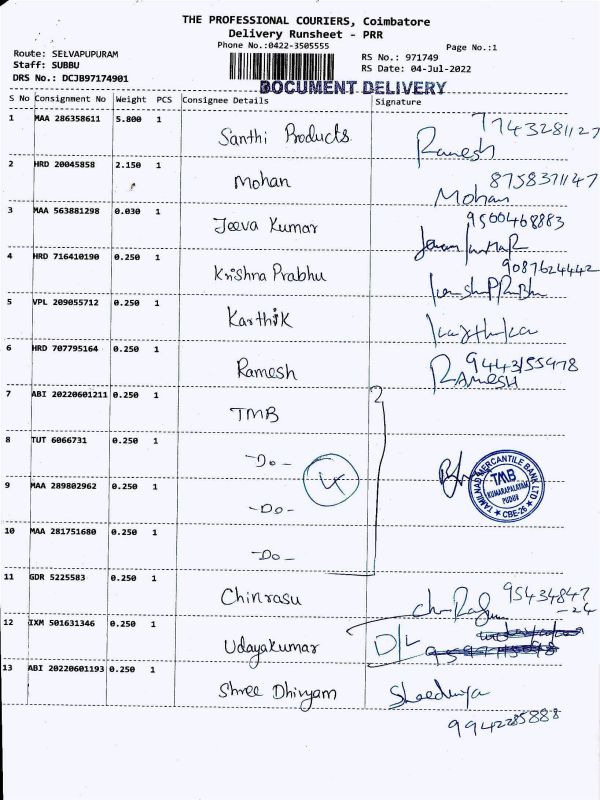 THE PROFESSIONAL COURIERS, Coimbatore
Delivery Runsheet - PRR
Phone No.:0422-3505555
Page No.:1
Route: SELVAPUPURAM
Staff: SUBBU
DRS No.: DCJB97174901
RS No.: 971749
RS Date: 04-Jul-2022
DOCUMENT DELIVERY
S No Consignment No Weight PCS Consignee Details Signature
1 MAA 286358611 5.800 1 Santhi Products 7743281127
Ramesh
2 HRD 20045858 2.150 1 Mohan 8758371147
Mohan
3 MAA 563881298 0.030 1 Jeeva Kumar 9500468883
4 HRD 716410190 0.250 1 Krishna Prabhu 9087624442
5 VPL 209055712 0.250 1 Karthik
6 HRD 707795164 0.250 1 Ramesh 9443155978
RAMESH
7 ABI 20220601211 0.250 1 TMB
8 TUT 6066731 0.250 1 -Do-
9 MAA 289802962 0.250 1 -Do-
10 MAA 281751680 0.250 1 -Do-
4
TAMILNAD MERCANTILE BANK LTD
TMB
KUMARAPALAYAM
PUDUR
CBE-26
11 GDR 5225583 0.250 1 Chinrasu 95434847
-24
12 IXM 501631346 0.250 1 Udayakumar D/L
13 ABI 20220601193 0.250 1 Shree Dhivyam
9942285888